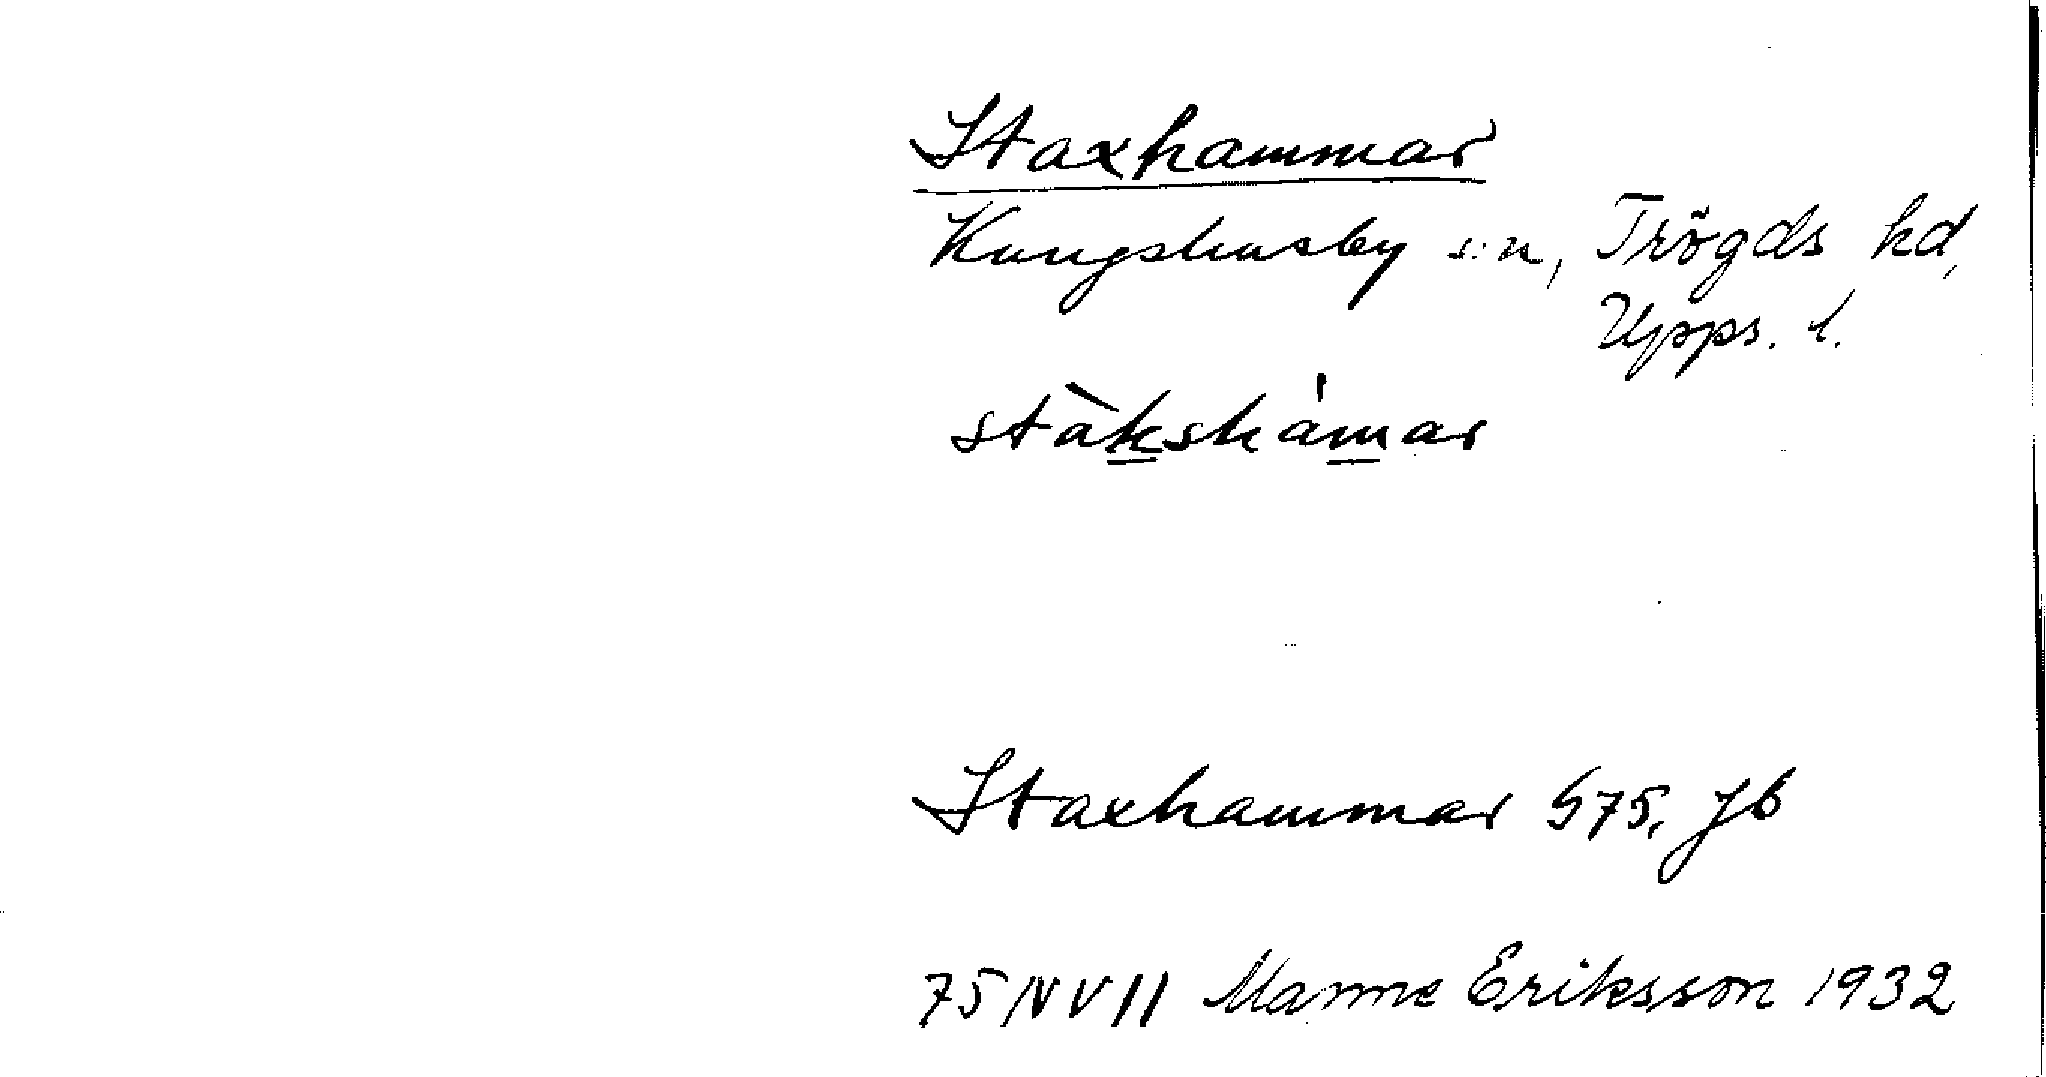 Staxhammar
Kungshusby s:n, Trögds hd,
Upps. l.
stàkshámar
Staxhammar G75, Jb
75 NV II Manne Eriksson 1932